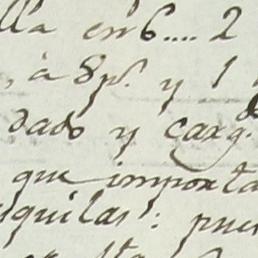 lla en 6.... 2
, à 8 p.s y 1
dado y carg.do
que importa
quilas: pue